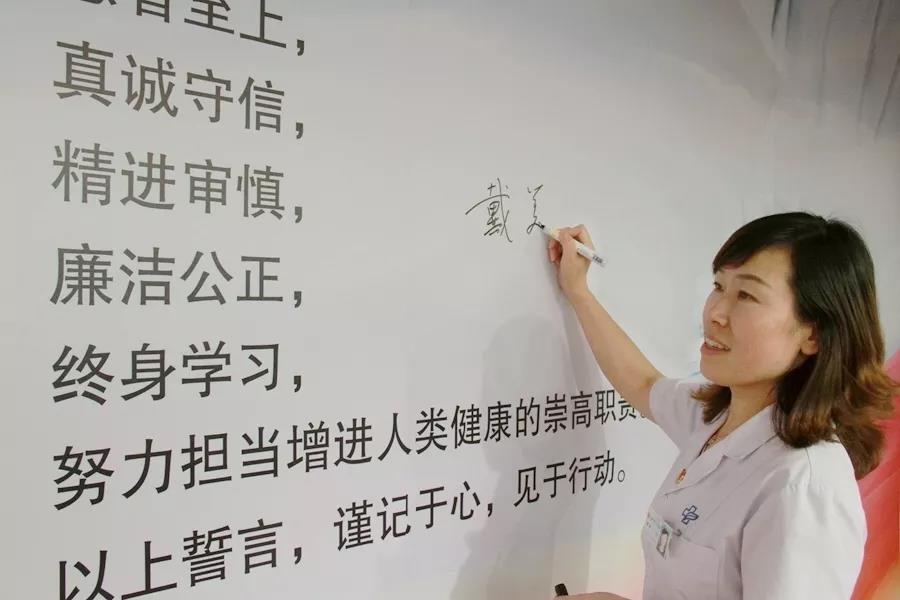 患者至上，
真诚守信，
精进审慎，
廉洁公正，
终身学习，
努力担当增进人类健康的崇高职责。
以上誓言，谨记于心，见于行动。
戴美